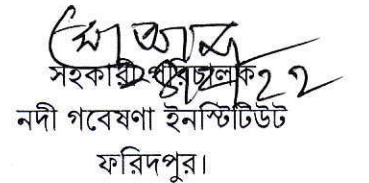 সহকারী পরিচালক
নদী গবেষণা ইনস্টিটিউট
ফরিদপুর।